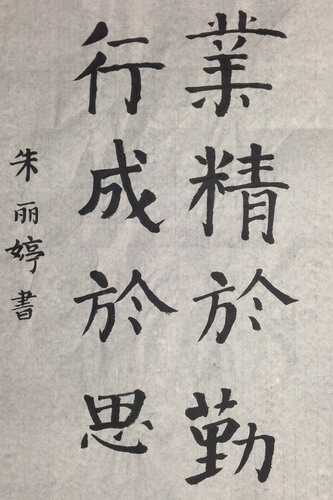 業精於勤
行成於思
朱丽婷書